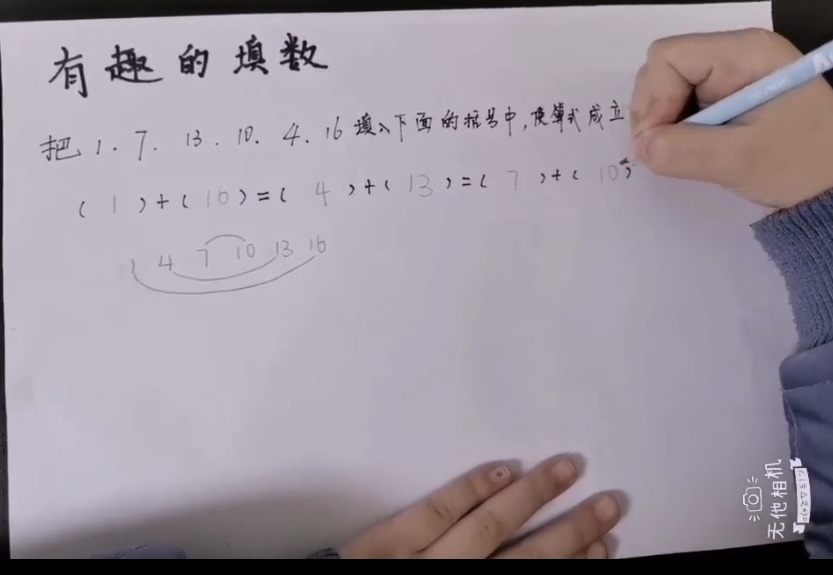 有趣的填数
把 1. 7. 13. 10. 4. 16 填入下面的括号中,使算式成立
( 1 )+( 16 )=( 4 )+( 13 )=( 7 )+( 10 )
1 4 7 10 13 16
无他相机